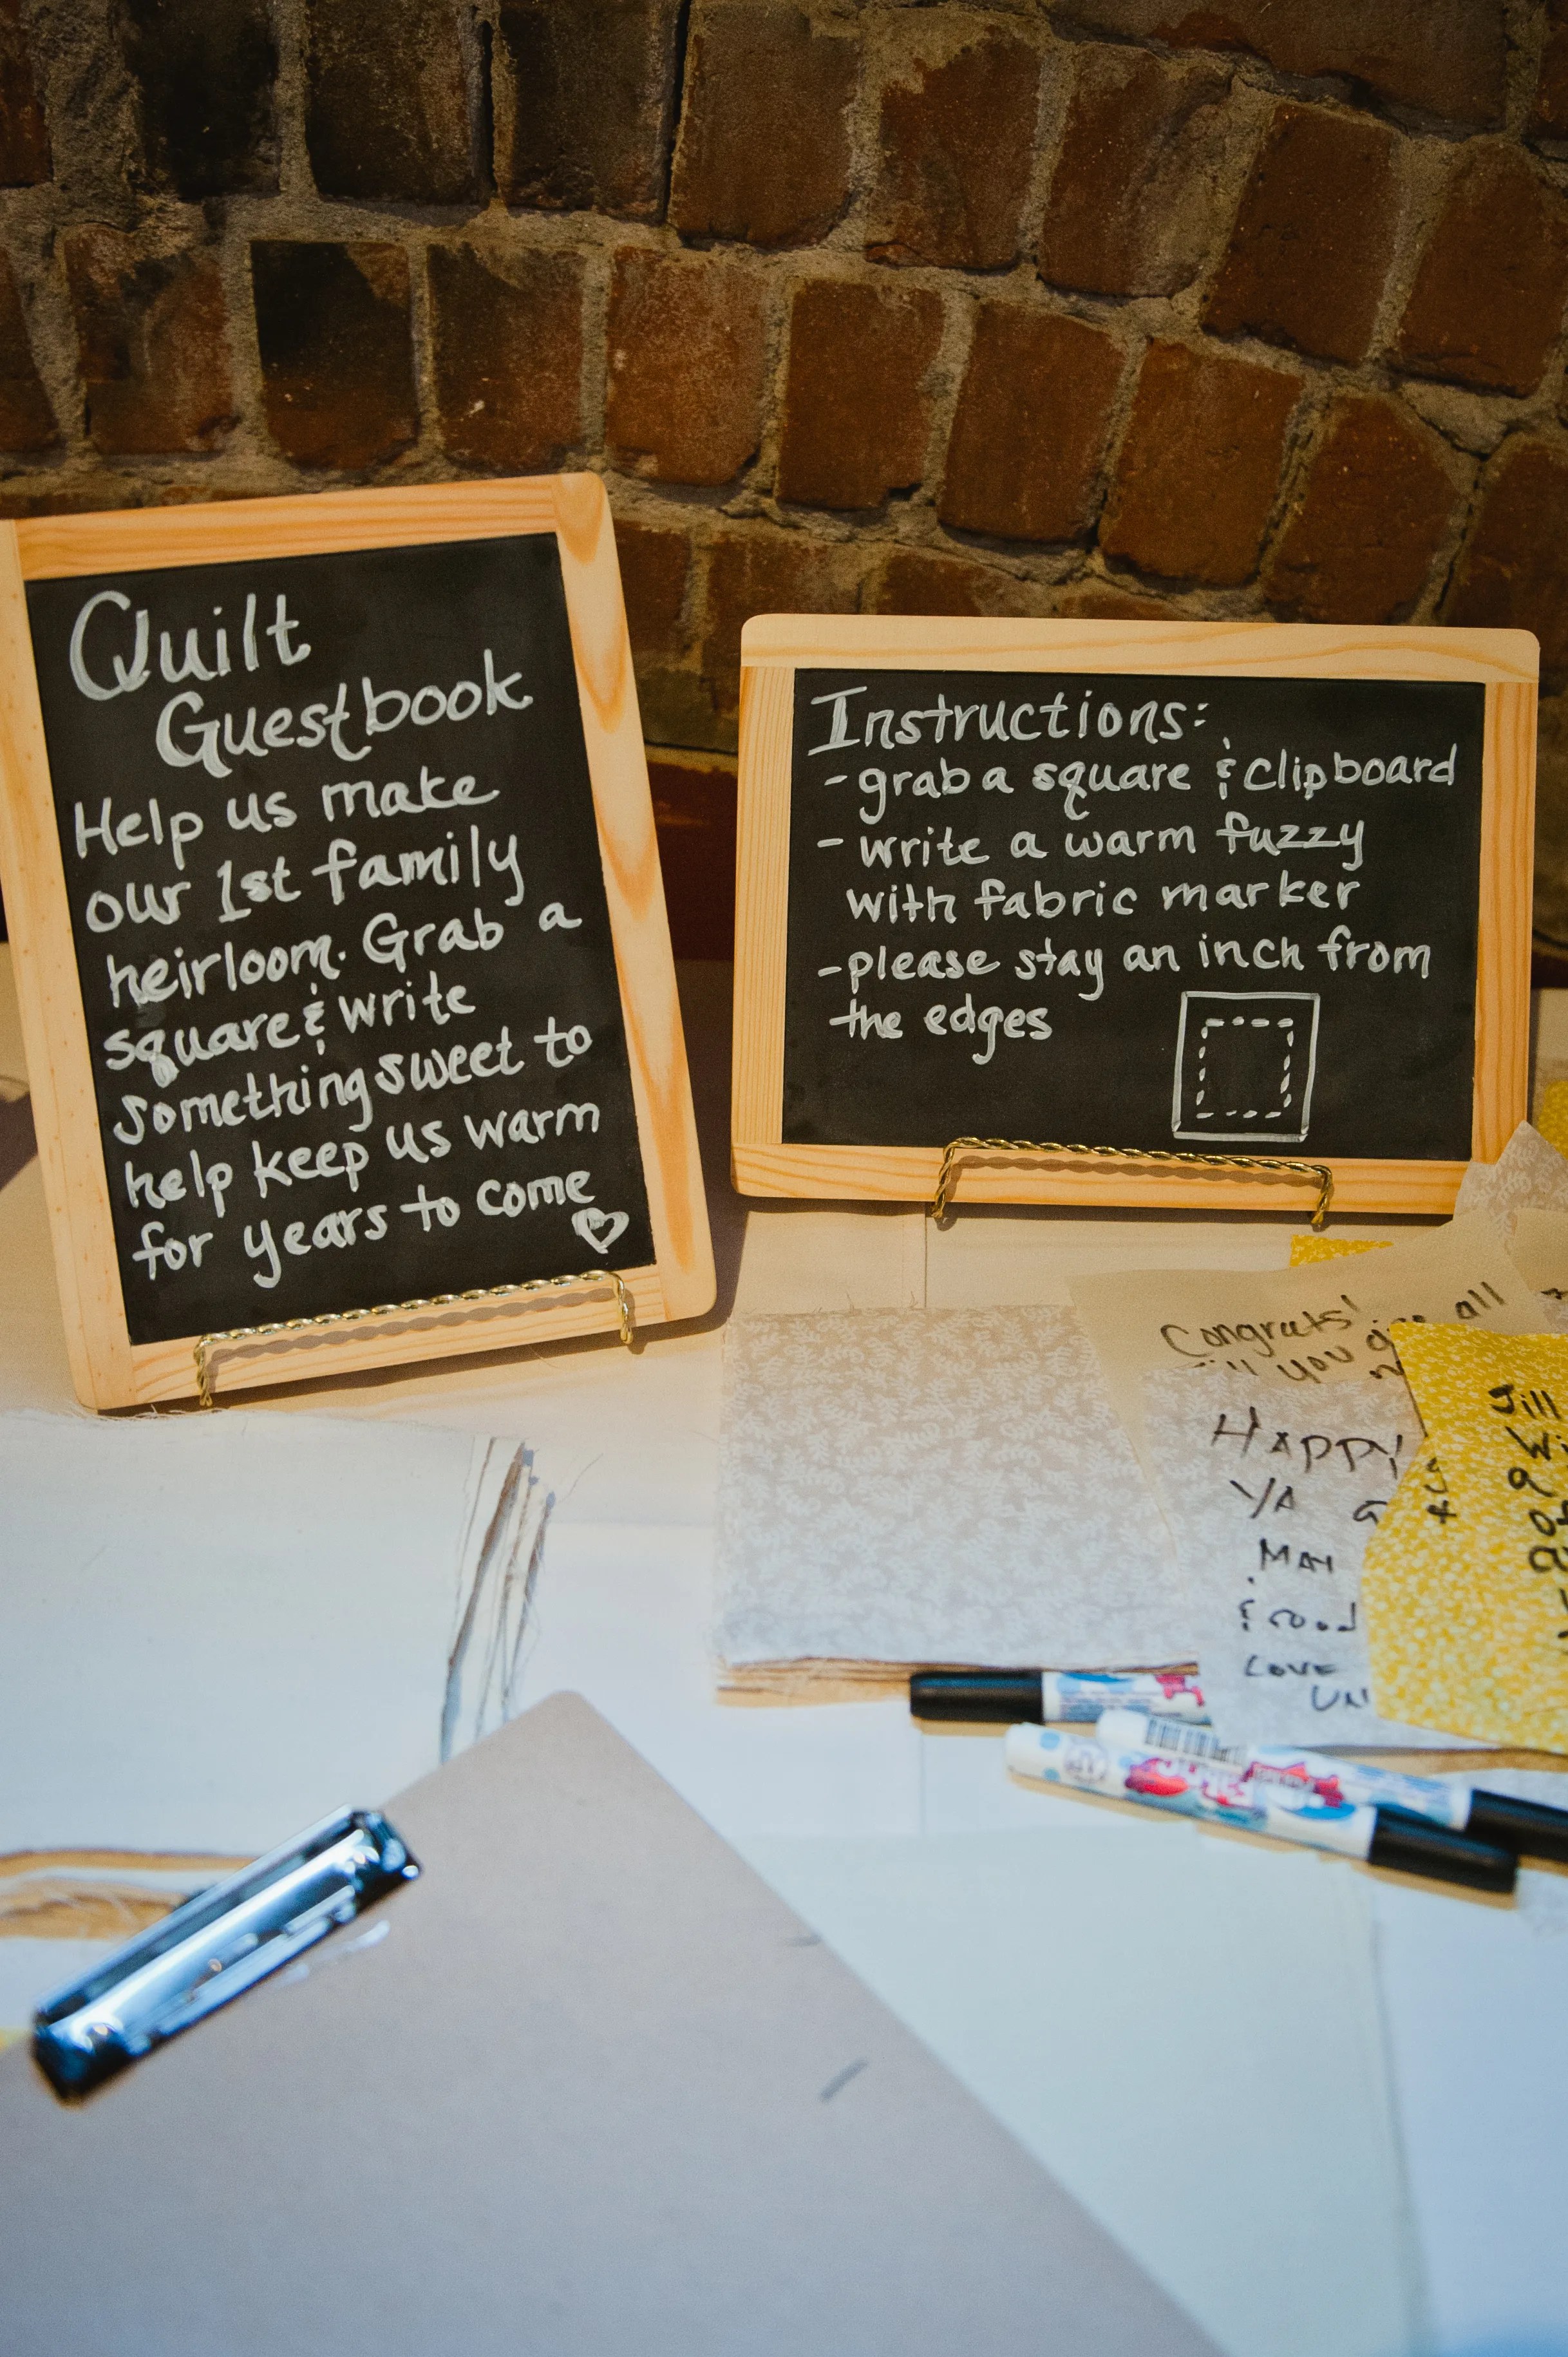 Quilt
Guestbook
Help us make
our 1st family
heirloom. Grab a
square & write
something sweet to
help keep us warm
for years to come
Instructions:
- grab a square & clipboard
- write a warm fuzzy
with fabric marker
- please stay an inch from
the edges
Congrats!
you all
HAPPY
YA
MAY
& GOOD
LOVE
Jill